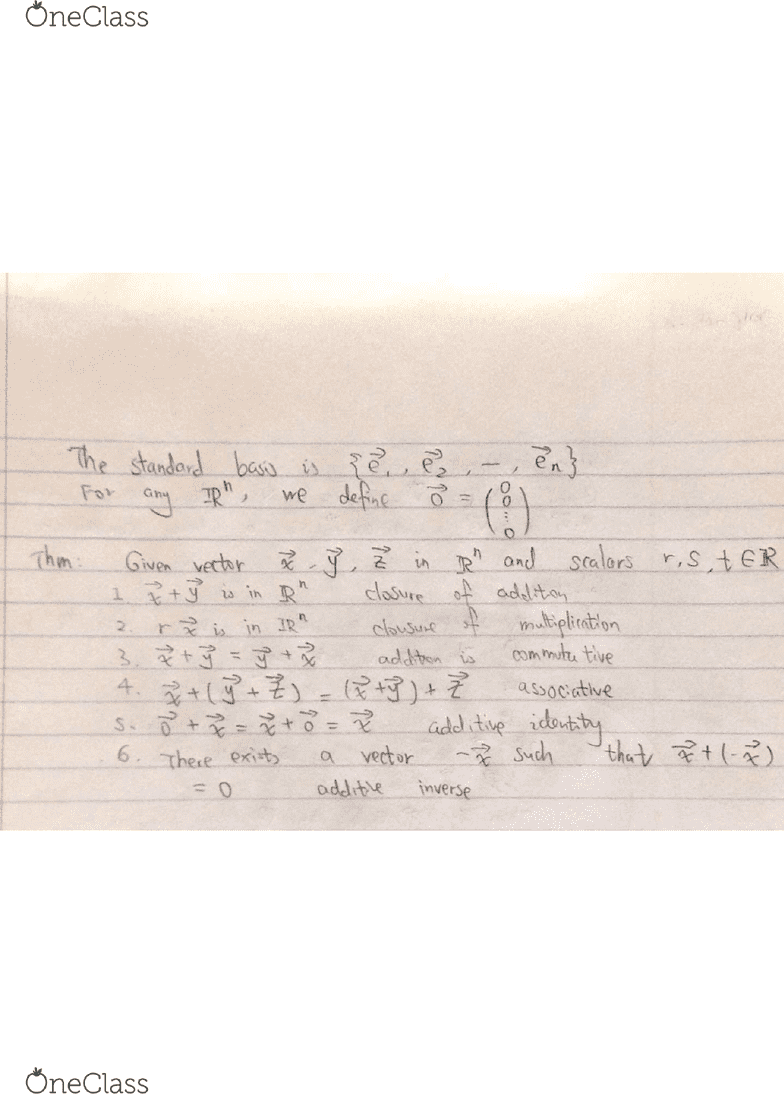 OneClass
The standard basis is {e⃗₁, e⃗₂, –, e⃗n}
For any ℝⁿ, we define 0⃗ = (0 0 ⋮ 0)
Thm: Given vector x⃗, y⃗, z⃗ in ℝⁿ and scalars r, s, t ∈ ℝ
1. x⃗ + y⃗ is in ℝⁿ closure of addition
2. r x⃗ is in ℝⁿ clousure of multiplication
3. x⃗ + y⃗ = y⃗ + x⃗ addition is commutative
4. x⃗ + (y⃗ + z⃗) = (x⃗ + y⃗) + z⃗ associative
5. 0⃗ + x⃗ = x⃗ + 0⃗ = x⃗ additive identity
6. There exists a vector -x⃗ such that x⃗ + (-x⃗)
= 0 additive inverse
OneClass